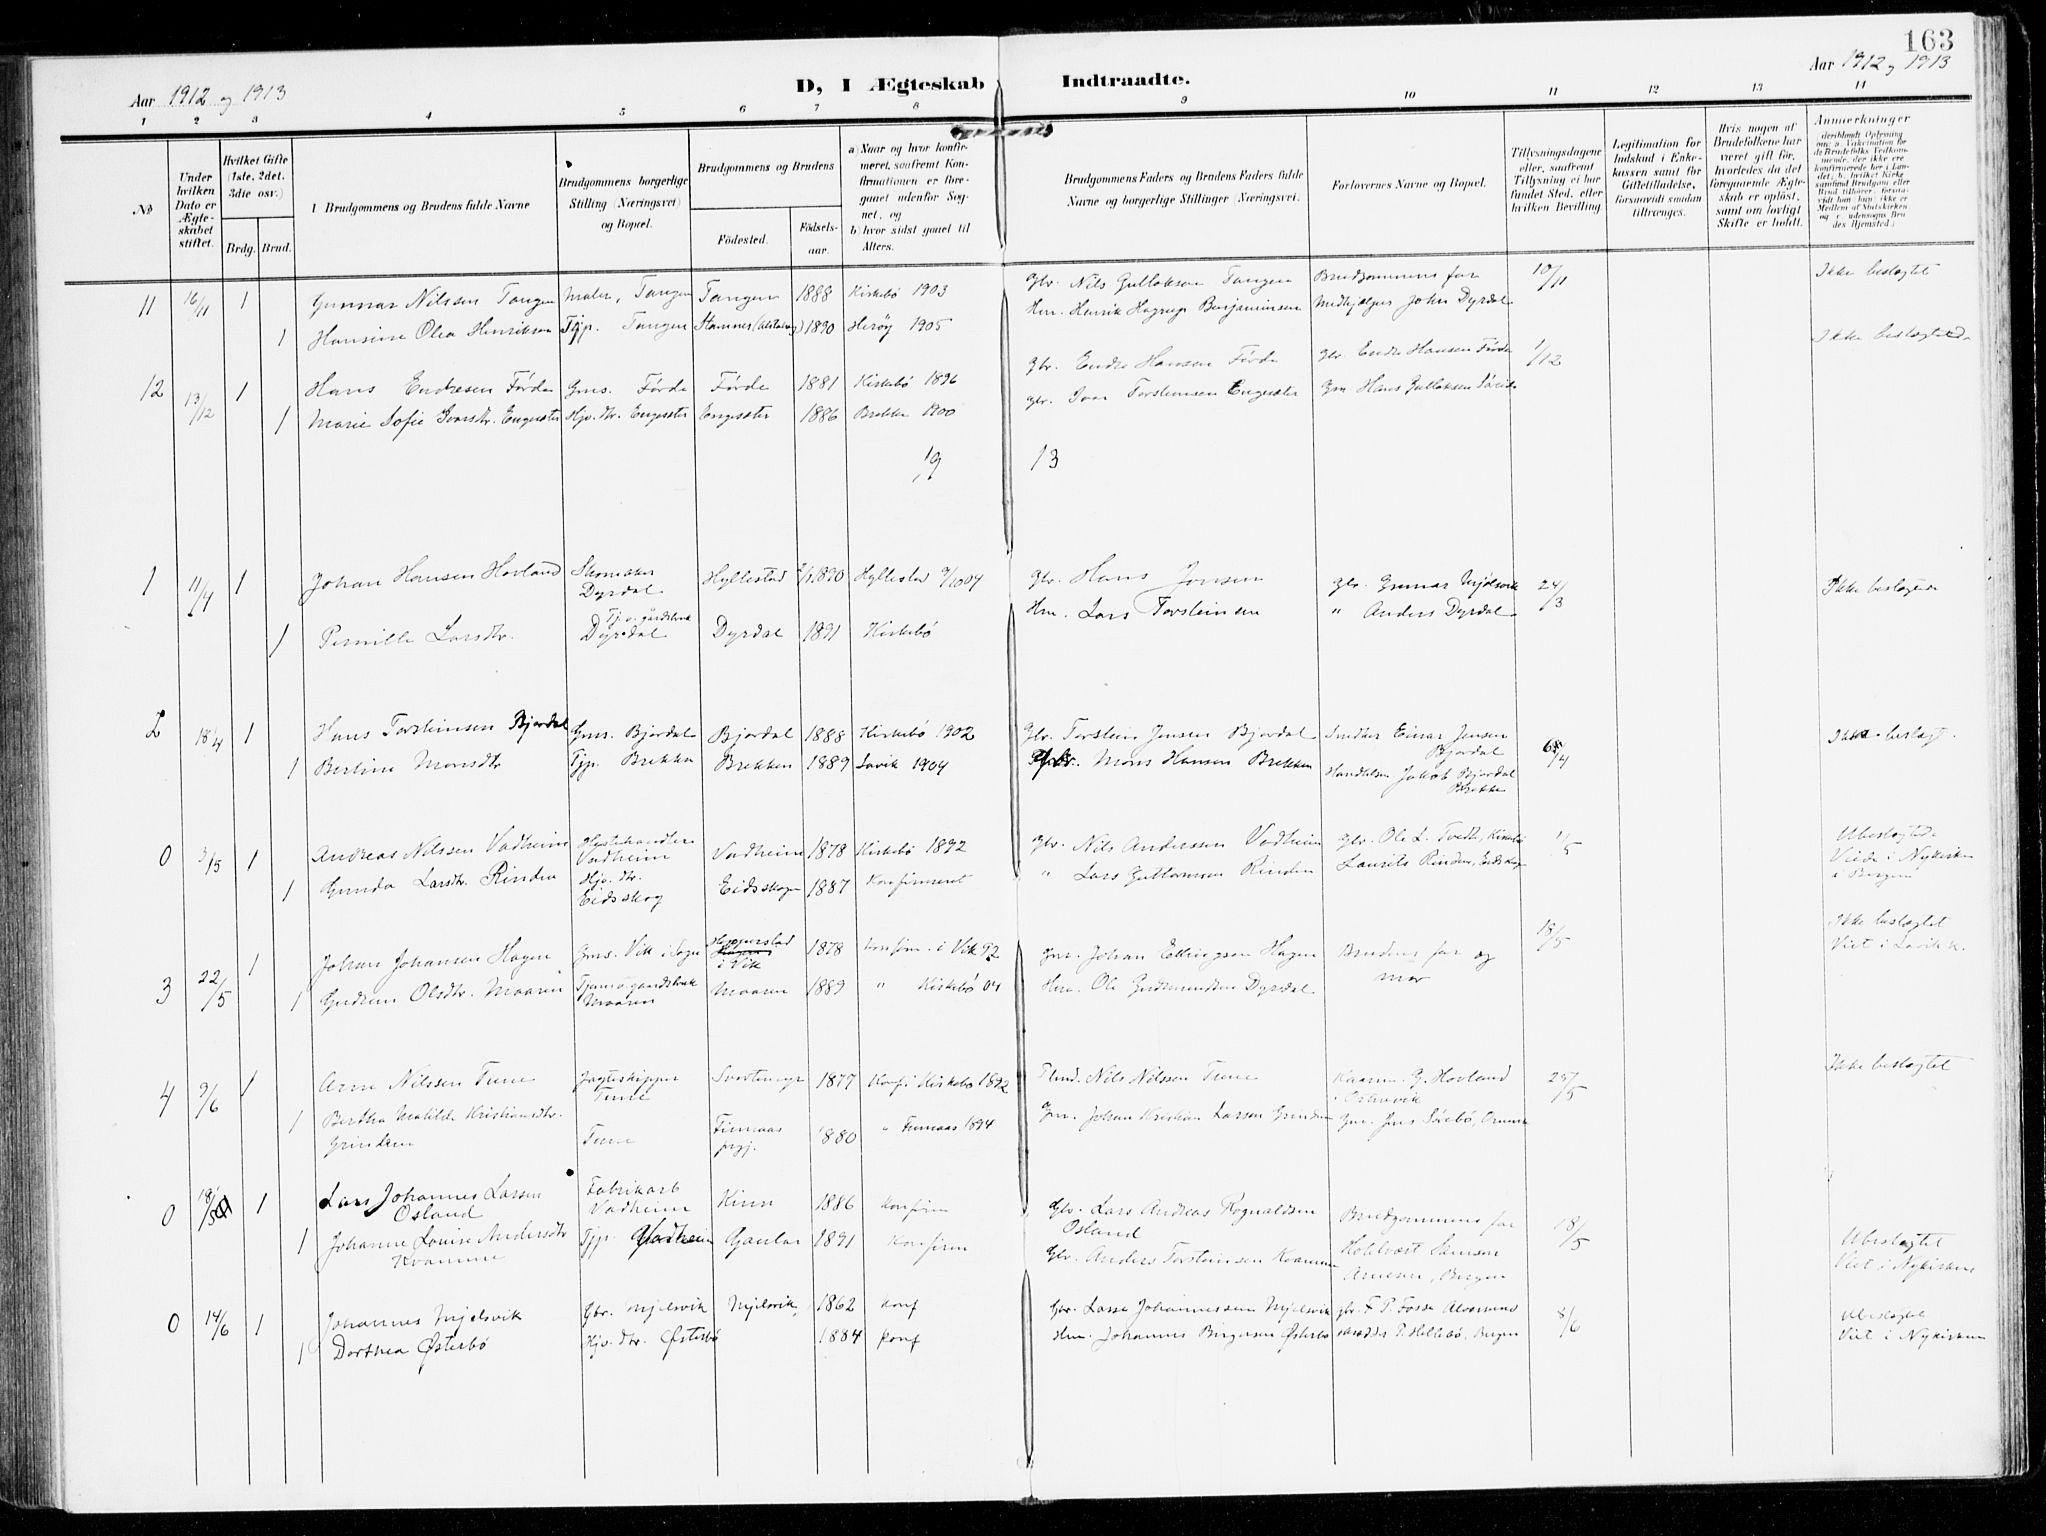 163
Aar 1912 og 1913
D, I Ægteskab Indtraadte.
Aar 1912 og 1913
1 2 3 4 5 6 7 8 9 10 11 12 13 14
No
Under hvilken Dato er Ægteskabet stiftet.
Hvilket Gifte (1ste, 2det, 3die osv.)
Brdg. Brud.
1 Brudgommens og Brudens fulde Navne
Brudgommens borgerlige Stilling (Næringsvei) og Bopæl.
Brudgommens og Brudens
Fødested. Fødselsaar.
a) Naar og hvor konfirmeret, saafremt Konfirmationen er foregaaet udenfor Sognet, og
b) hvor sidst gaaet til Alters.
Brudgommens Faders og Brudens Faders fulde Navne og borgerlige Stillinger (Næringsvei.
Forlovernes Navne og Bopæl.
Tillysningsdagene eller, saafremt Tillysning ei har fundet Sted, efter hvilken Bevilling.
Legitimation for Indskud i Enkekassen samt for Giftetilladelse, forsaavidt saadan tiltrænges.
Hvis nogen af Brudefolkene har været gift før, hvorledes da det foregaaende Ægteskab er opløst, samt om lovligt Skifte er holdt.
Anmerkninger
11 16/11 1 Gunnar Nilsen Tangen Maler, Tangen Tangen 1888 Kirkebø 1903 Gbr. Nils Gulleksen Tangen Brudgommens far 10/11 Ikke beslegtet
1 Hansine Olea Henriksen Tjp. Tangen Stamnes 1890 Herøy 1905 Hm. Henrik Hagrup Benjaminsen Medhjelper John Dyrdal
12 13/12 1 Hans Endresen Førde Gms. Førde Førde 1881 Kirkebø 1896 Gbr. Endre Hansen Førde Gbr. Endre Hansen Førde 1/12 Ikke beslegtede
1 Marie Sofie Ivarsdtr. Engesæter Hjv. dtr. Engesæter Engesæter 1886 Brekke 1900 Gbr. Ivar Torsteinsen Engesæter Gm Hans Gulleksen
19 13
1 11/4 1 Johan Hansen Hovland Skomaker Dyrdal Hyllestad 1890 Hyllestad 9/10 04 Gbr. Hans Jonsen Gbr. Gunnar Mjølsvik 24/3 Ikke beslegtede
1 Pernille Larsdtr. Tj. v. gårdsbruk Dyrdal Dyrdal 1891 Kirkebø Hm. Lars Torsteinsen " Anders Dyrdal
2 18/4 1 Hans Torsteinsen Bjordal Gms. Bjordal Bjordal 1888 Kirkebø 1902 Gbr. Torstein Jensen Bjordal Snedker Einar Jensen Bjordal 6/4 Ikke beslegt.
1 Bertine Monsdtr Tjp. Brekke Brekken 1889 Lavik 1904 Gbr. Mons Hansen Brekken Jakob Bjordal Brekke
0 3/5 1 Andreas Nilssen Vadheim Hestehandler Vadheim Vadheim 1878 Kirkebø 1892 Gbr. Nils Anderssen Vadheim Gbr. Ole L. Tvedt, Kirkebø 1/5 Ubeslegtede
1 Gunda Larsdtr. Rinden Hjv. dtr. Eidsskog Eidsskogen 1887 Konfirmeret " Lars Rinden Laurits Rinden, Eidskog Viede i Nykirken i Bergen
3 22/5 1 Johan Johansen Hagen Gms. Vik i Sogn Hopperstad i Vik 1878 konfirm. i Vik 92 Gm. Johan Ellingsen Hagen Brudens far og mor 18/5 Ikke beslegtet Viet i Lavik k.
1 Gudrun Olsdtr. Maaren Maaren Maaren 1889 " Kirkebø 04 Hm. Ole Gudmundsen Dyrdal
4 9/6 1 Arne Nilssen Tune Jagteskipper Tune Svortemyr 1877 Konf. i Kirkebø 1892 Nils Nilssen Tune G. Hovland 25/5 Ikke beslegtet
1 Bertha Matilde Kristiansdtr. Grinden Tune Finnaas prgj. 1880 " Finnaas 1894 Gm. Johan Kristian Larsen Grinden Gm. Jens Sæbø,
0 18/5 1 Lars Johannes Larsen Osland Fabrikarb Vadheim Kinn 1886 konfirm Gbr. Lars Andreas Rognaldsen Osland Brudgommens far 18/5 Ubeslegtet
1 Johanne Louise Andersdtr Kvamme Tjp. Vadheim Gaular 1891 Konfirm Gbr. Anders Torsteinsen Kvamme Samson Arnesen, Bergen Viet i Nykirken
0 14/6 1 Johannes Mjelsvik Gbr. Mjelsvik Mjelsvik, 1862 konf Gbr. Lasse Johannessen Mjelsvik Gbr. F. P. Fosse Alversund 8/6 Ubeslegtet
1 Dorthea Østerbø Hjv. dtr. Østerbø 1884 konf Hm. Johannes Birgersen Østerbø P. Hellebø, Bergen Viet i Nykirken